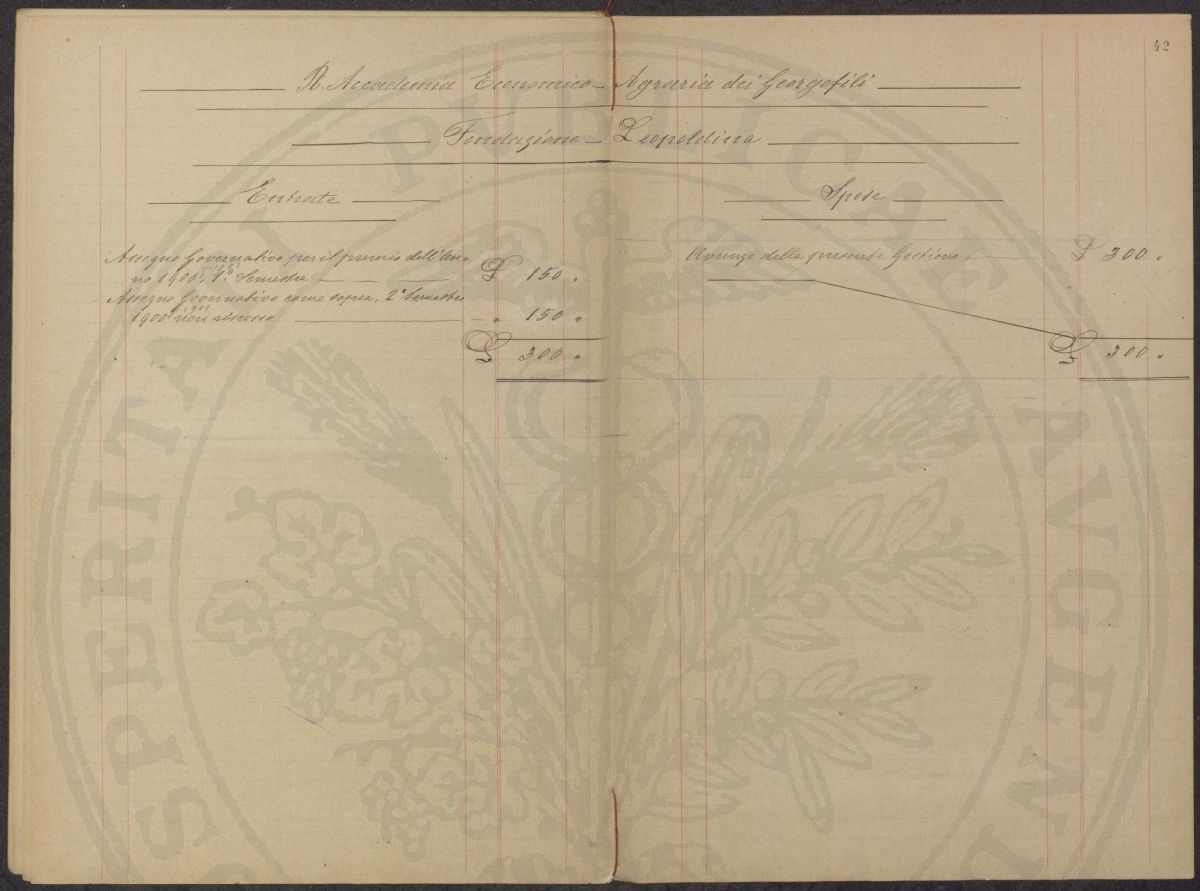 42
R. Accademia Economico-Agraria dei Georgofili
Fondazione Leopoldina
Entrate
Assegno Governativo per il premio dell'An-
no 1900, 1° Semestre £ 150 "
Assegno Governativo come sopra, 2° Semestre
1900 non riscosso " 150 "
£ 300 "
Spese
Avanzo della presente Gestione £ 300 "
£ 300 "
PROSPERITATI PUBLICAE AVGEN